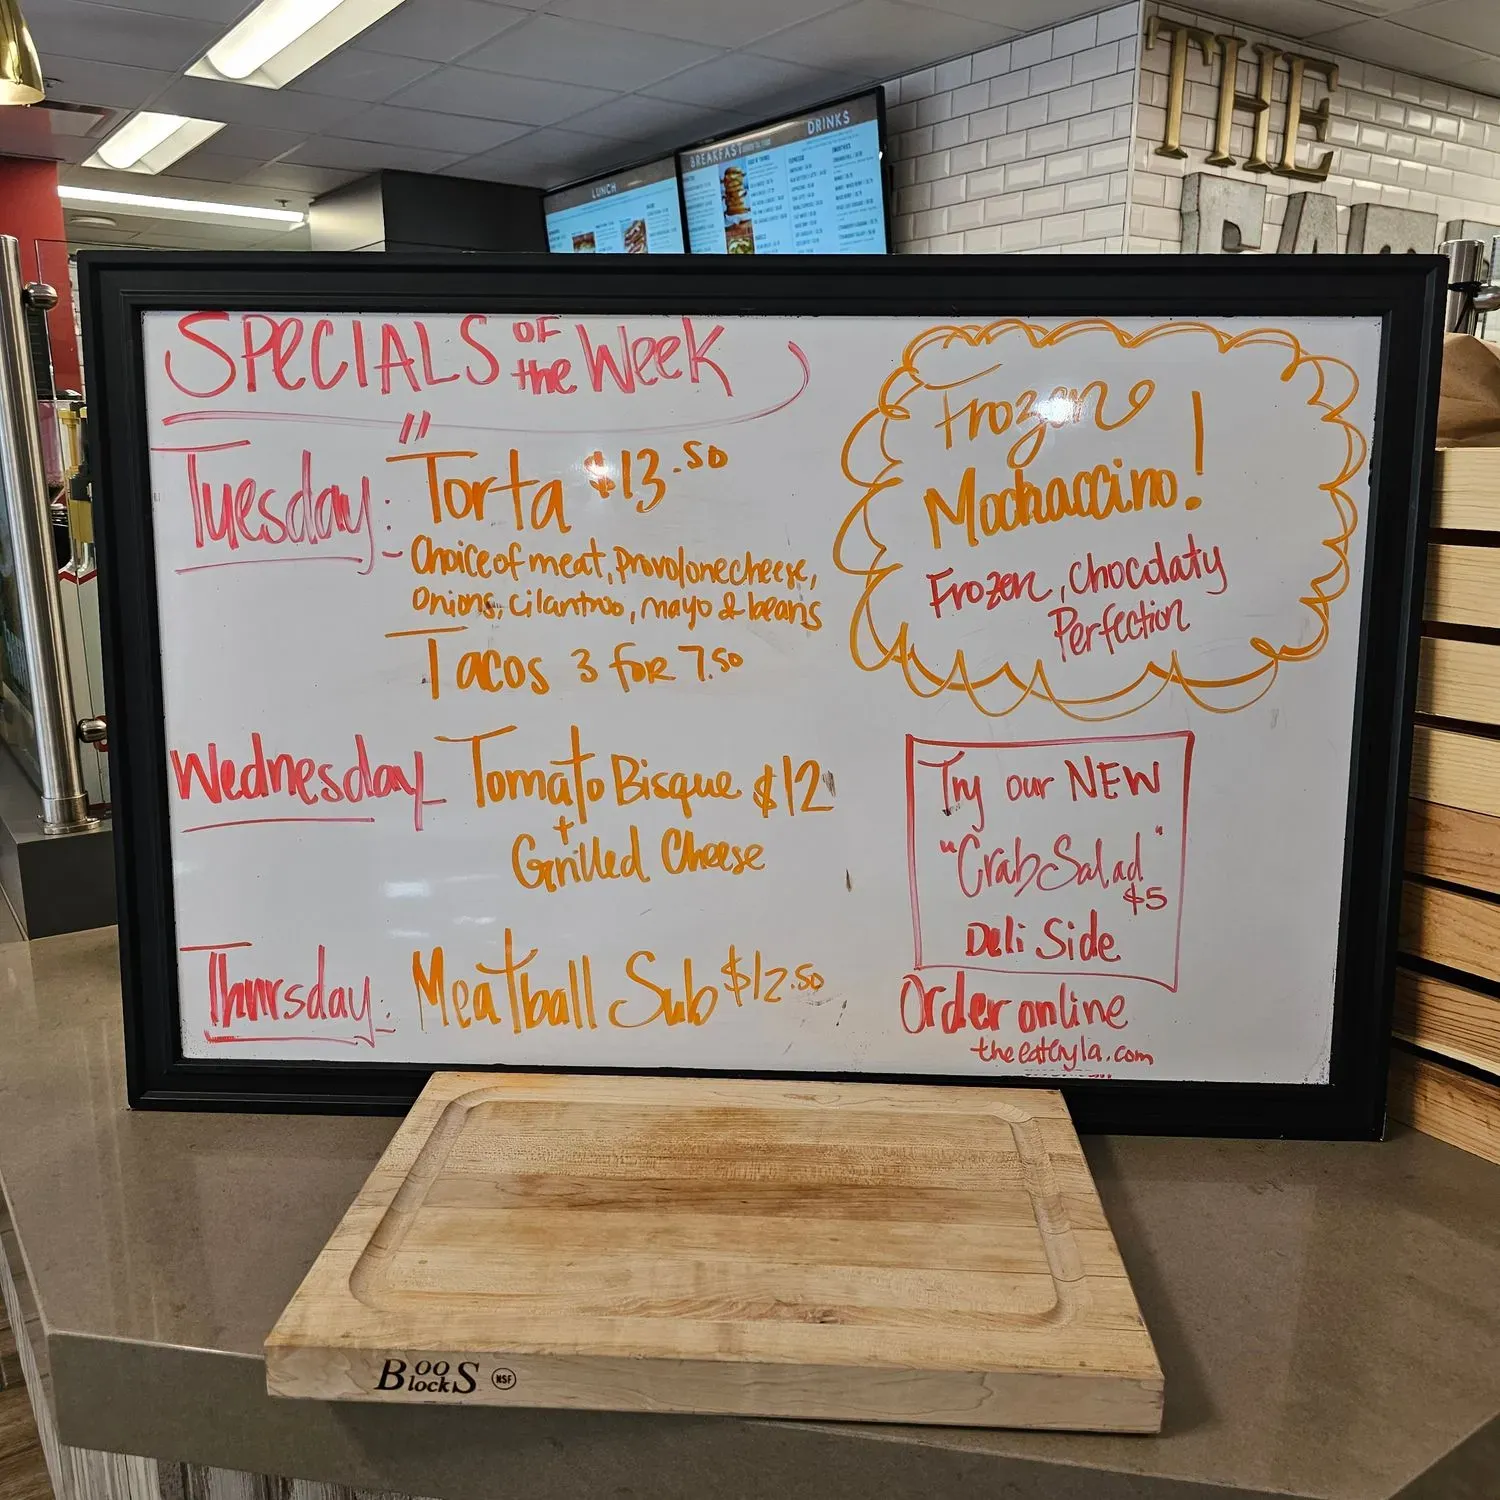 THE
DRINKS
BREAKFAST
LUNCH
SPECIALS OF the Week
Tuesday: Torta $13.50
Choice of meat, provolone cheese,
onions, cilantro, mayo & beans
Tacos 3 for 7.50
Wednesday Tomato Bisque $12
+
Grilled Cheese
Thursday: Meatball Sub $12.50
Frozen
Mochaccino!
Frozen, Chocolaty
Perfection
Try our NEW
"Crab Salad"
$5
Deli Side
Order online
theeateryla.com
BOOS
BlockS
NSF